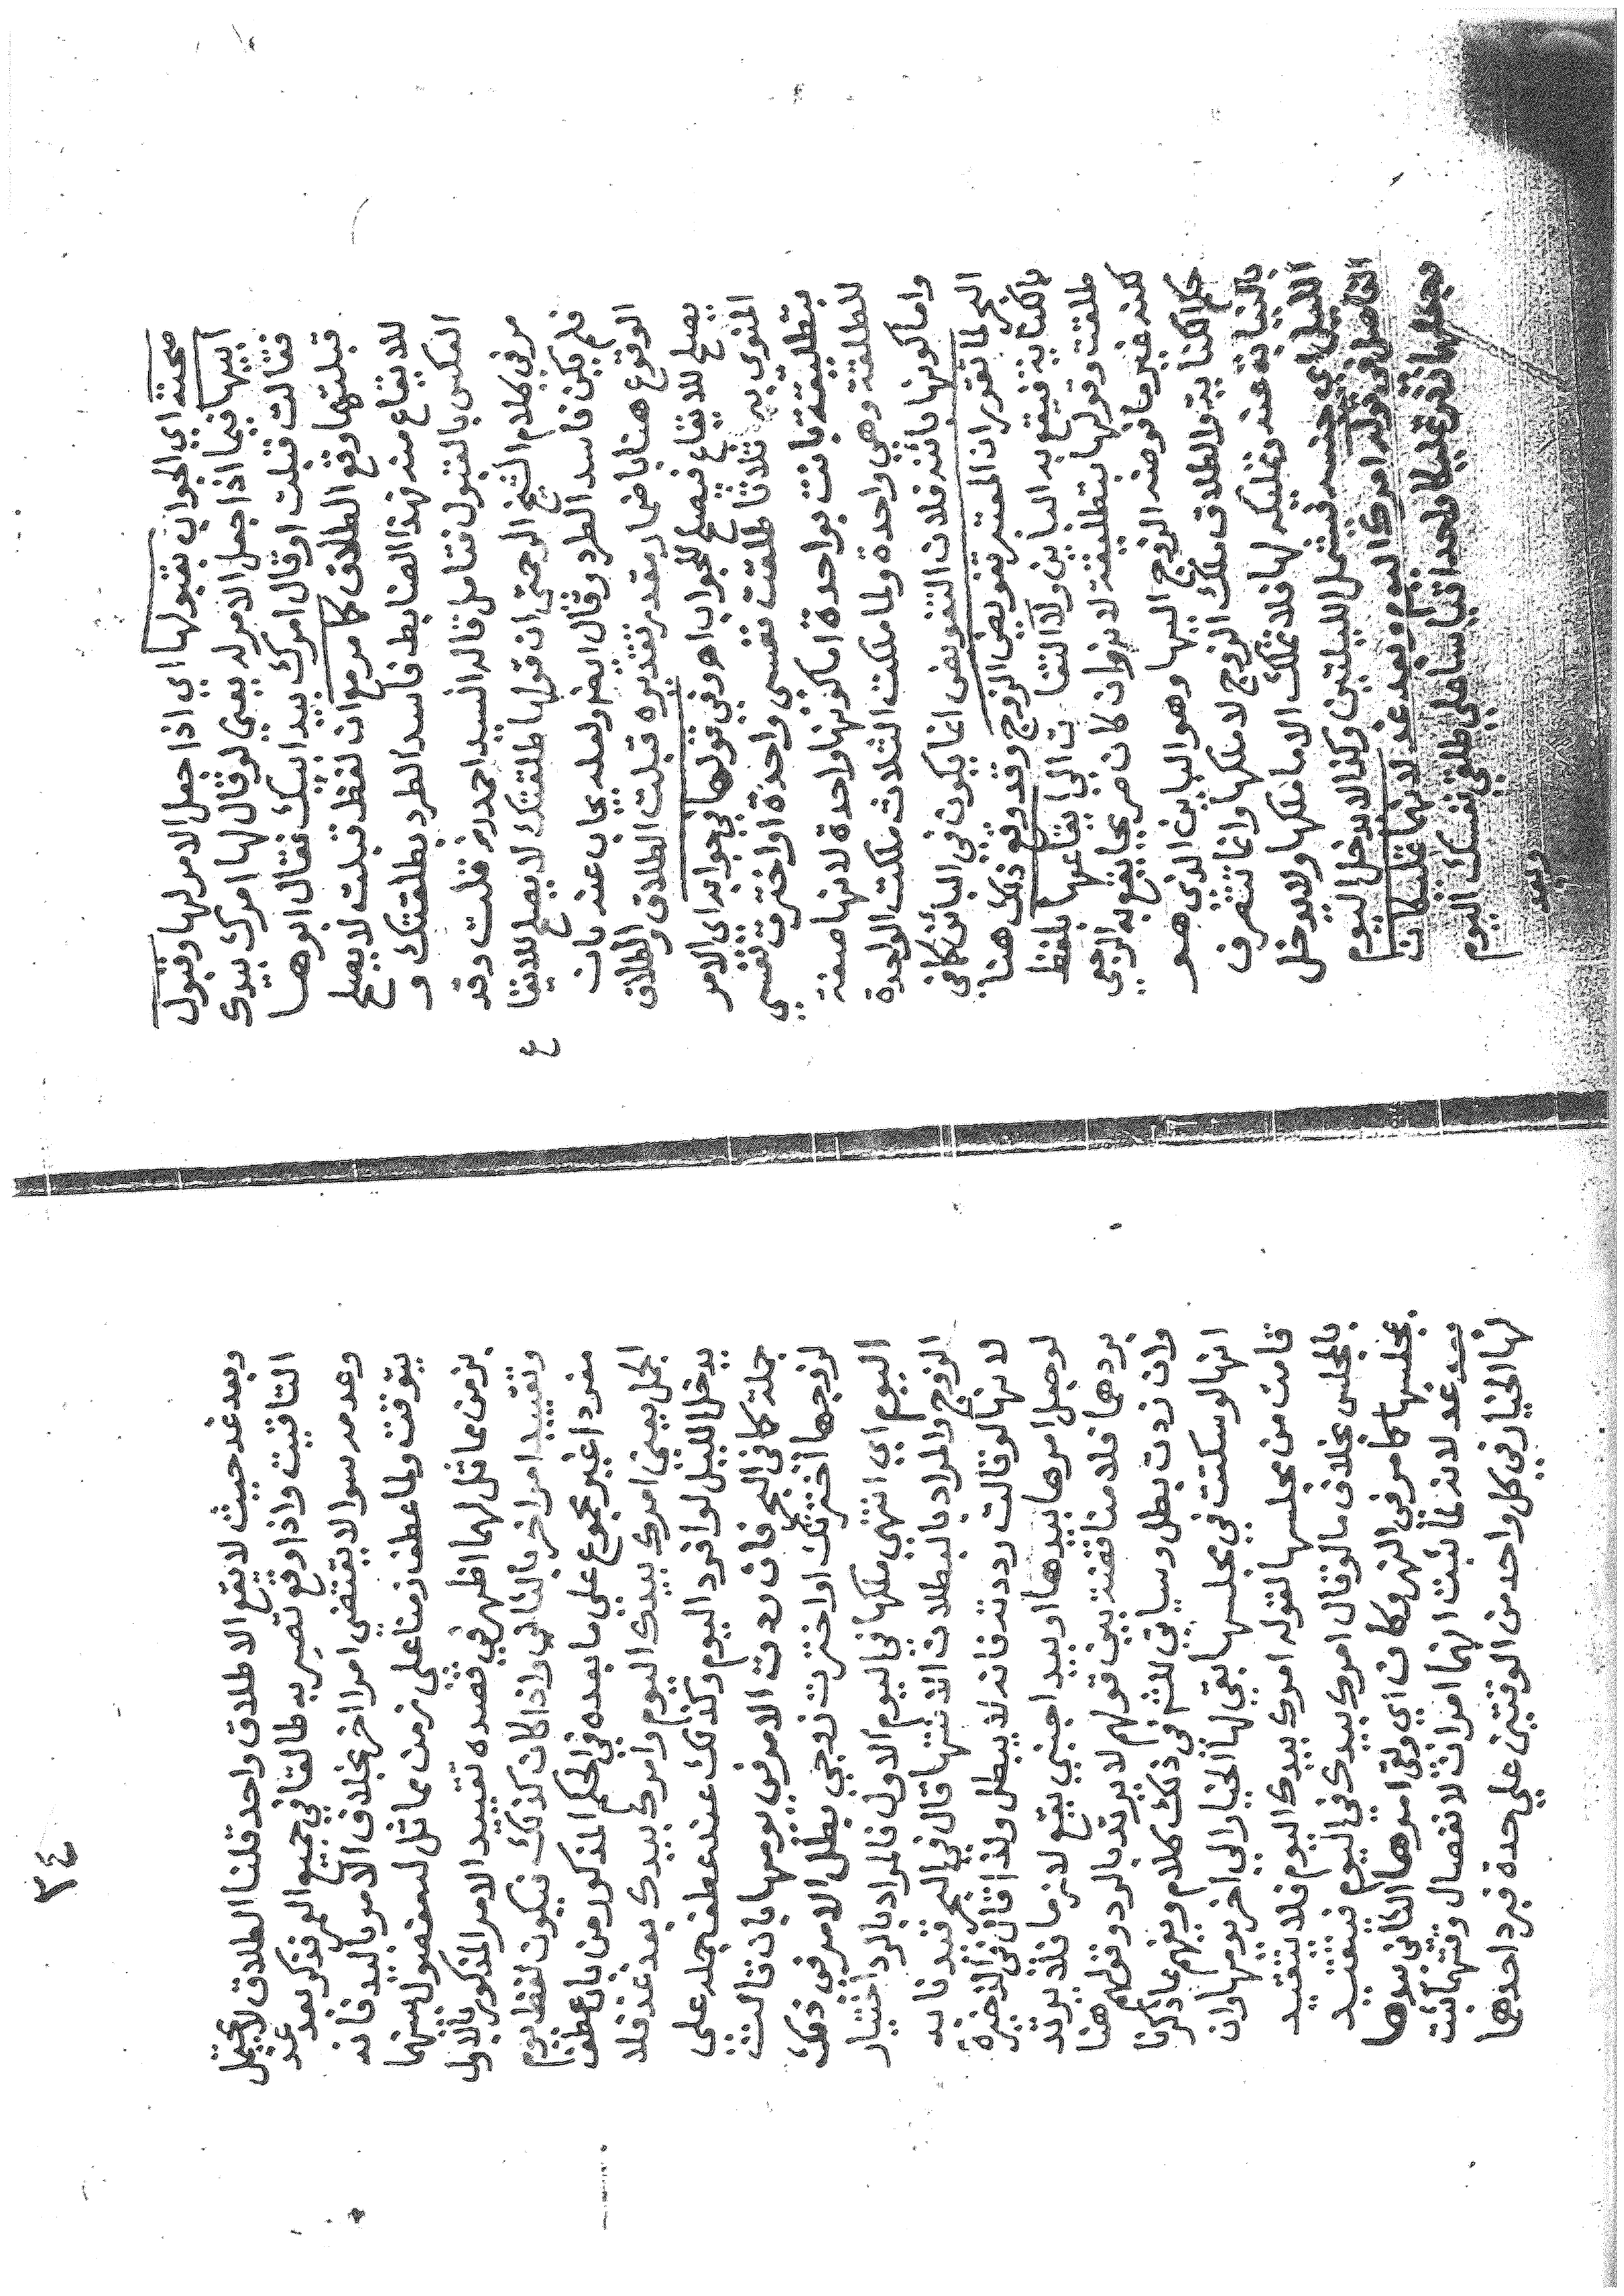 صحته اي الجواب بقبولها اي اذا جعل الامر لها وقبول
ابيها فيما اذا جعل الامر له يعني لو قال لها امرك بيدي
فقالت قبلت او قال امرك بيد ابيك فقال ابوها
قبلتها وقع الطلاق كما مر مع ان لفظ قبلت لا يصلح
للايقاع منه فهذا الضابط فاسد الطرد بطلقتك و
العكس بالقبول فتامل قاله السيد احمد ره قلت وقد
مر في كلام الشيخ الرحمتي ان قولها طلقتك لا يصلح للايقا ع
فلم يكن فاسد الطرد وقال ايضا ولعله يجاب عنه بان
الوقوع هنا باضمار مقدر تقديره قبلت الطلاق والطلاق
يصلح للايقاع فيصلح للجواب اه وفي قولها في جوابه اي الامر
المنوي به ثلاثا طلقت نفسي واحدة او اخترت نفسي
بتطليقة بانت بواحدة اما كونها واحدة لانها صفة
للطلقة وهي واحدة ولما ملكت الثلاث ملكت الواحدة
واما كونها بائنة فلان التفويض انما يكون في البائن كما في
البحر لما تقرر ان المعتبر تفويض الزوج وقد وقع ذلك هنا
بالكناية فيقع به الباين ولا التفات الي ايقاعها بلفظ
طلقت وقولها بتطليقة لانه وان كان صريحا يقع به الرجعي
لكنه غير ما فوضه الزوج اليها وهو الباين الذي هو
حكم الكناية والطلاق ملك الزوج لا ملكها وانما تتصرف
بالنيابة عنه وتمليكه لها فلا تملك الا ما ملكها ولا يدخل
الليل اي جنسه فيشمل الليلتين وكذا لا يدخل اليوم
الفاصل في قوله امرك اليوم وبعد غد لانهما تمليكان
واحدا قياسا علي طلقي نفسك اليوم
وبعد
٢٤
وبعد غد حيث لا يقع الا طلاق واحد قلنا الطلاق لا يحتمل
التاقيت واذا وقع تصير به طالقا في جميع العمر فذكر بعد غد
وعدمه سوا لا يقتضي امرا اخر بخلاف الامر باليد فانه
يتوقت ولما عطف زمنا علي زمن مماثل لمفصول بينهما
بزمن مماثل لهما اظهر في قصده تقييد الامر المذكور بالاول
وتقييد امر اخر بالثاني واذا كان كذلك فيكون لفظ يوم
مفردا غير مجموع علي ما بعده في الحكم المذكور من بان عطف
الجمل يعني امرك بيدك اليوم وامرك بيدك بعد غد فلا
يدخل الليل لو افرد اليوم وكذلك عند عطف جملة علي
جملة كما في البحر فان ردت الامر في يومها بان قالت
لزوجها اخترتك او اخترت زوجي بطل الامر في ذلك
اليوم اي انتهي ملكها في اليوم الاول فالمراد بالرد اختيار
الزوج والمراد بالبطلان الانتها قال في البحر قيد نا به
لانها لو قالت رددته فانه لا يبطل ولذا قال في الذخيرة
لو جعل امرها بيدها او بيد اجنبي يقع لازما فلا يرتد
بردها فلا مناقضة بين قولهم لا يرتد بالرد وقولهم هنا
وان ردت بطل وسياتي للشم في ذلك كلام ويفهم مما ذكرنا
انها لو سكتت في مجلسها بقي لها الخيار الي اخر يومها وان
قامت من مجلسها لقوله امرك بيدك اليوم فلا يتقيد
بالمجلس بخلاف ما لو قال امرك بيدك في اليوم فيتقيد
بمجلسها كما مر في النهر وكان اي وبقي امرها الثاني بيدها
بعد غد لانه لما ثبت انهما امران لانفصال وقتهما ثبت
لها الخيار في كل واحد من الوقتين علي حدة فبرد احدهما